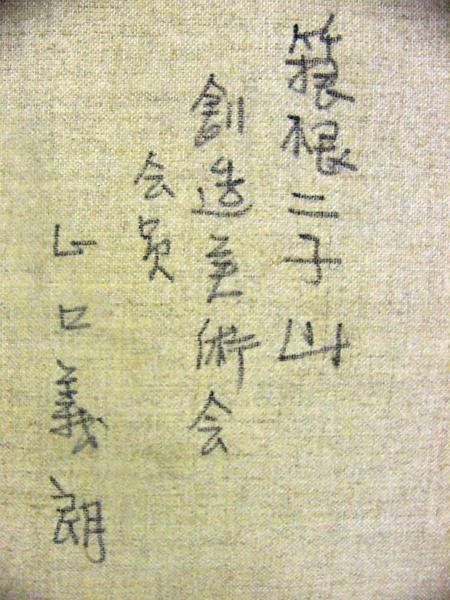 箱根二子山
創造美術会
会員
山口義朗